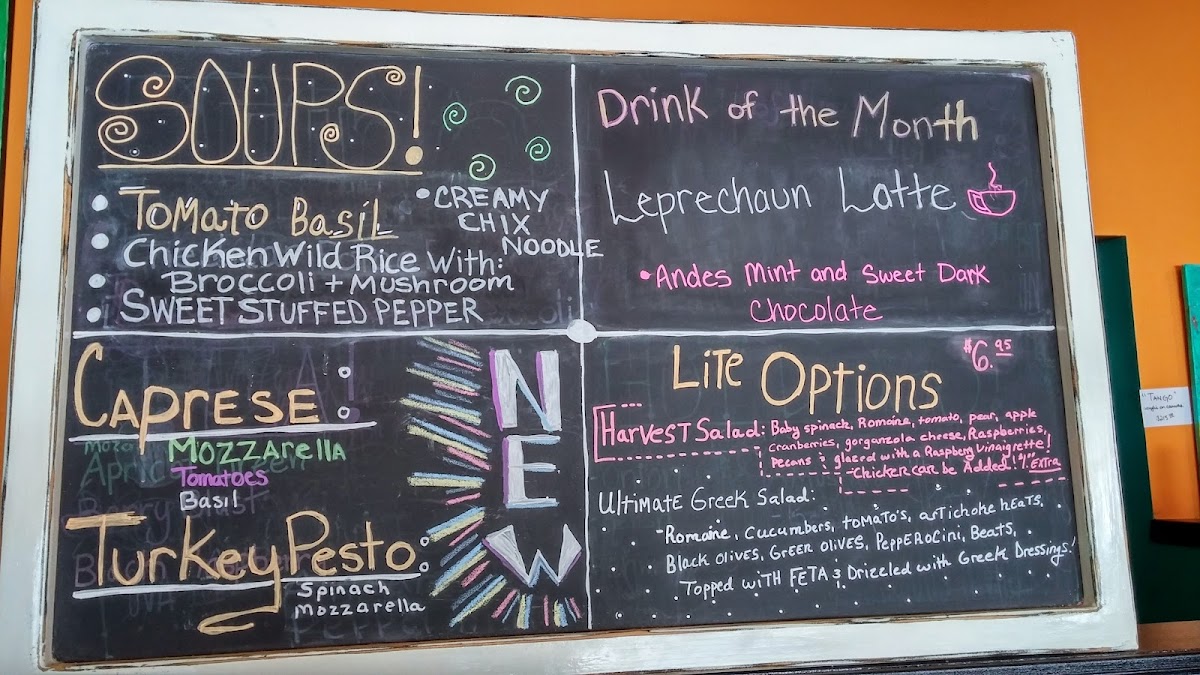 SOUPS!
• Tomato Basil
• Chicken Wild Rice With:
• Broccoli + Mushroom
• SWEET STUFFED PEPPER
• CREAMY
CHIX
NOODLE
Drink of the Month
Leprechaun Latte
• Andes Mint and Sweet Dark
Chocolate
CAPRESE:
MOZZARELLA
Tomatoes
Basil
Turkey Pesto:
Spinach
Mozzarella
NEW
Lite Options
$6.95
Harvest Salad: Baby spinach, Romaine, tomato, pear, apple
cranberries, gorganzola cheese, Raspberries,
Pecans & glazerd with a Raspberry Vinaigrette!
-Chicken can be Added!
EXTRA
Ultimate Greek Salad:
-Romaine, cucumbers, tomato's, artichoke heats,
Black olives, Green olives, PEPPEROCINI, Beats,
Topped with FETA & Drizzled with Greek Dressings!
"TANGO"